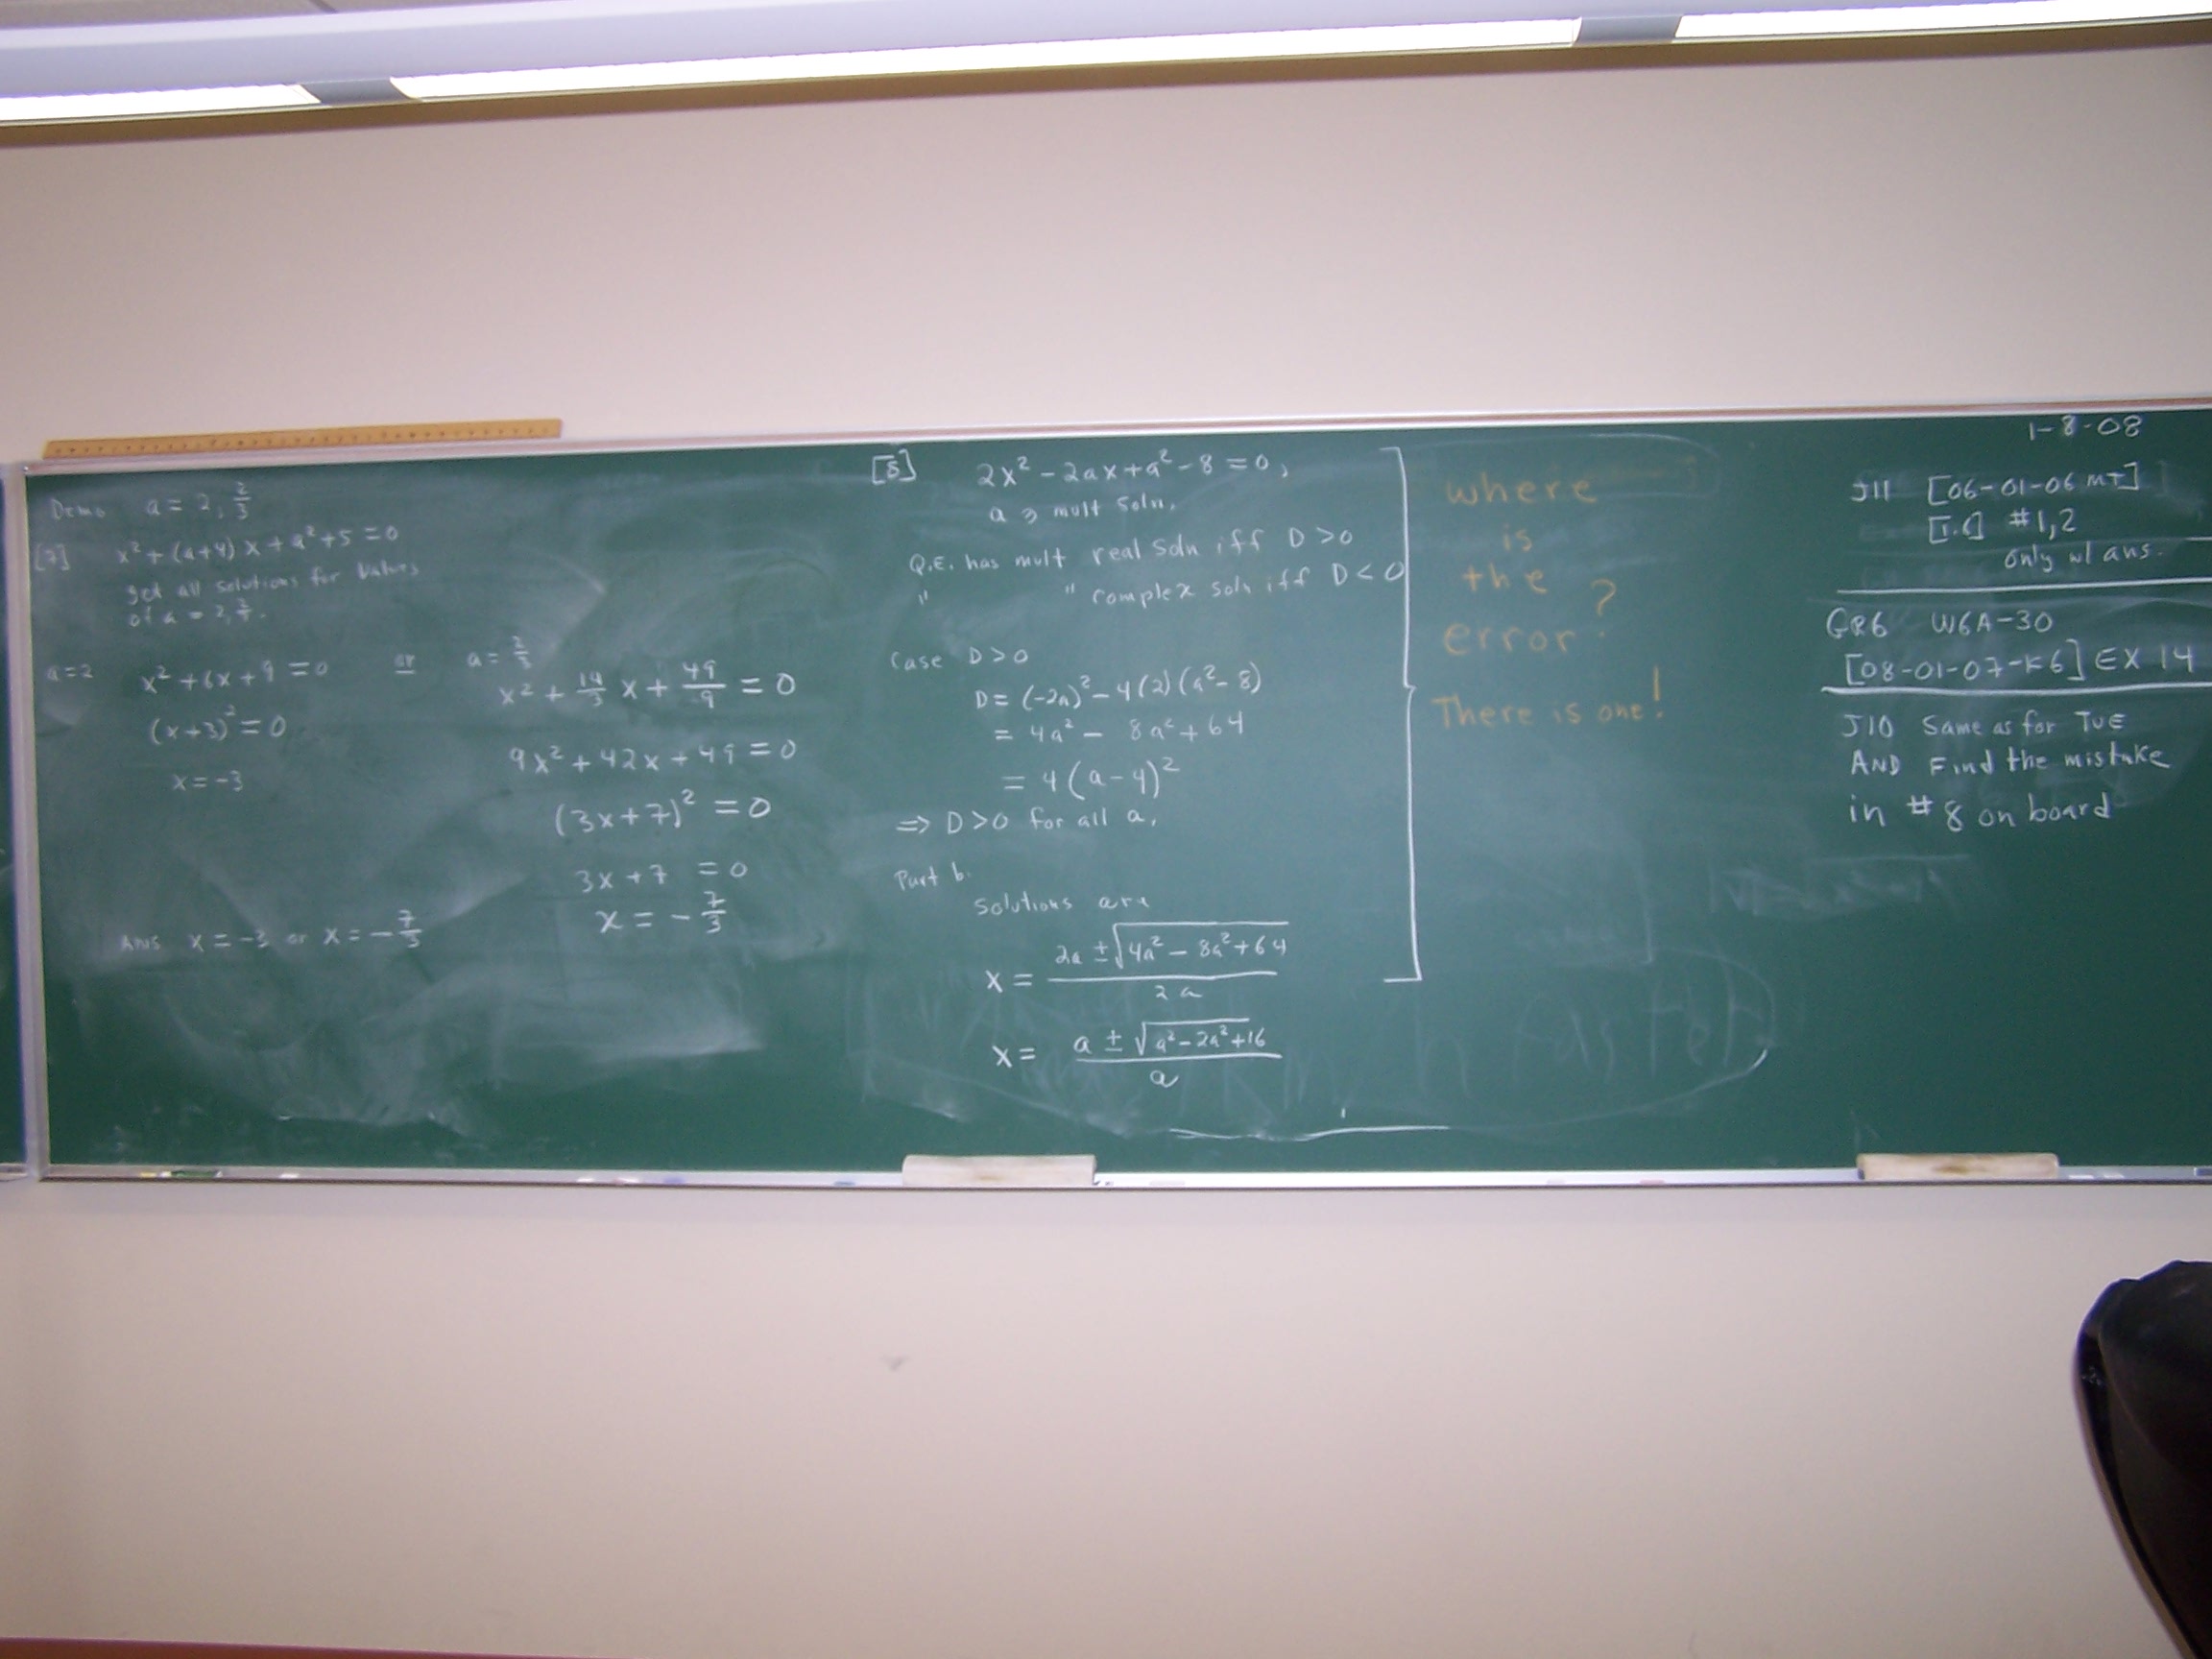 Demo a = 2, 2/3
[7] x² + (a+4) x + a² + 5 = 0
get all solutions for values
of a = 2, 2/3.
a=2 x² + 6x + 9 = 0
(x+3)² = 0
x = -3
or a = 2/3
x² + 14/3 x + 49/9 = 0
9x² + 42x + 49 = 0
(3x+7)² = 0
3x + 7 = 0
x = - 7/3
Ans x = -3 or x = - 7/3
[8] 2x² - 2ax + a² - 8 = 0,
a ∋ mult soln.
Q.E. has mult real soln iff D > 0
" " complex soln iff D < 0
Case D > 0
D = (-2a)² - 4(2)(a² - 8)
= 4a² - 8a² + 64
= 4(a-4)²
⇒ D > 0 for all a.
Part b.
Solutions are
x = (2a ± √(4a² - 8a² + 64)) / 2a
x = (a ± √(a² - 2a² + 16)) / a
where
is
the
error?
There is one!
1-8-08
J11 [06-01-06 MT]
#1,2
only w/ ans.
GR6 W6A-30
[08-01-07-K6] EX 14
J10 Same as for TUE
AND Find the mistake
in #8 on board